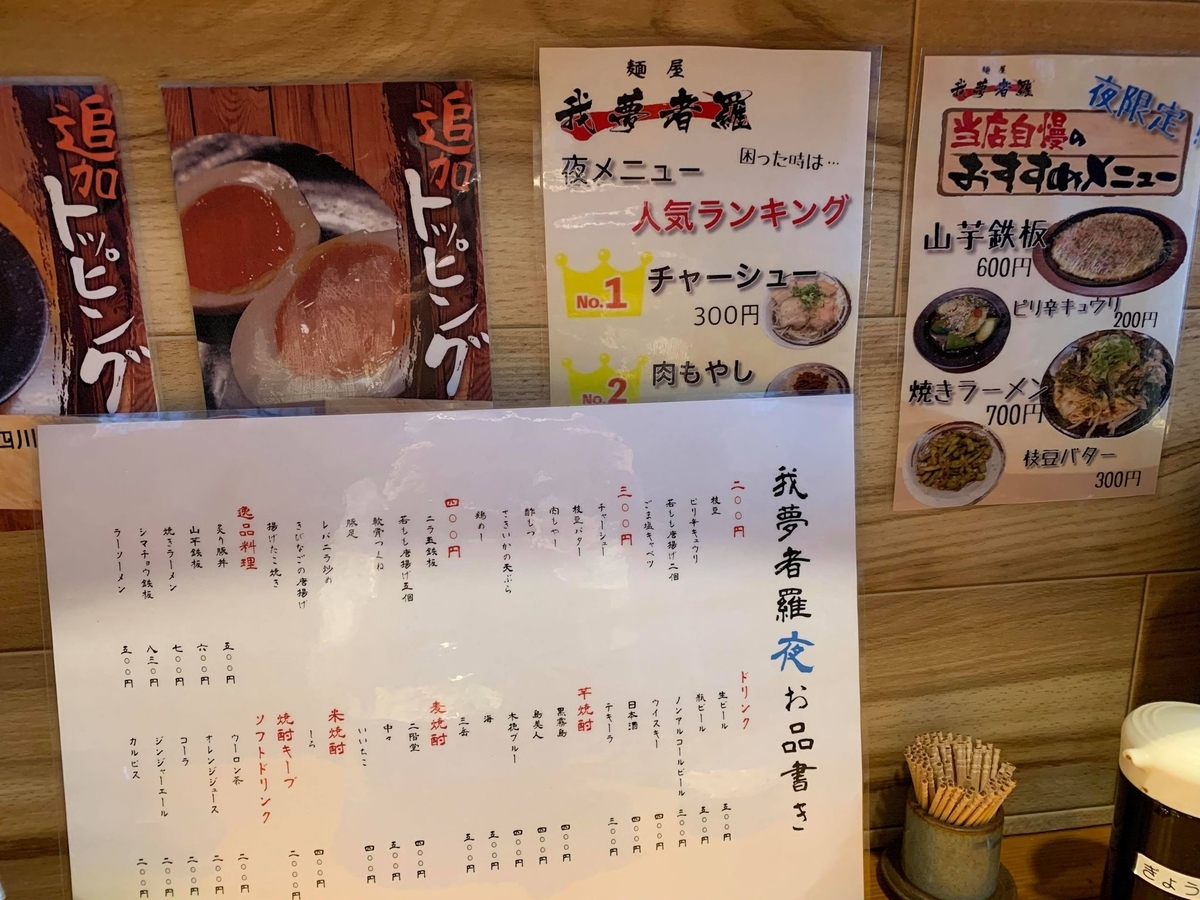 追加
トッピング
四川
追加
トッピング
麺屋
我夢者羅
夜メニュー
困った時は…
人気ランキング
No.1
チャーシュー
300円
No.2
肉もやし
麺屋
我夢者羅
夜限定
当店自慢の
おすすめメニュー
山芋鉄板
600円
ピリ辛キュウリ
200円
焼きラーメン
700円
枝豆バター
300円
我夢者羅夜お品書き
二〇〇円
枝豆
ピリ辛キュウリ
若しし唐揚げ二個
ごま塩キャベツ
三〇〇円
チャーシュー
枝豆バター
肉もやし
酢もつ
さきいかの天ぷら
鶏わー
四〇〇円
ニラ玉鉄板
若しし唐揚げ五個
軟骨つくね
豚足
レバニラ炒め
きびなごの唐揚げ
揚げたこ焼き
逸品料理
炙り豚丼 五〇〇円
山芋鉄板 六〇〇円
焼きラーメン 七〇〇円
シマチョウ鉄板 八三〇円
ラーソーメン 五〇〇円
ドリンク
生ビール 五〇〇円
瓶ビール 五〇〇円
ノンアルコールビール 三〇〇円
ウイスキー 四〇〇円
日本酒 四〇〇円
テキーラ 三〇〇円
芋焼酎
黒霧島 四〇〇円
島美人 四〇〇円
木挽ブルー 四〇〇円
海 五〇〇円
三岳 五〇〇円
麦焼酎
二階堂 四〇〇円
中々 五〇〇円
いいちこ 四〇〇円
米焼酎
しろ 四〇〇円
焼酎キープ 二〇〇〇円
ソフトドリンク
ウーロン茶 二〇〇円
オレンジジュース 二〇〇円
コーラ 二〇〇円
ジンジャーエール 二〇〇円
カルピス 二〇〇円
ぎょう